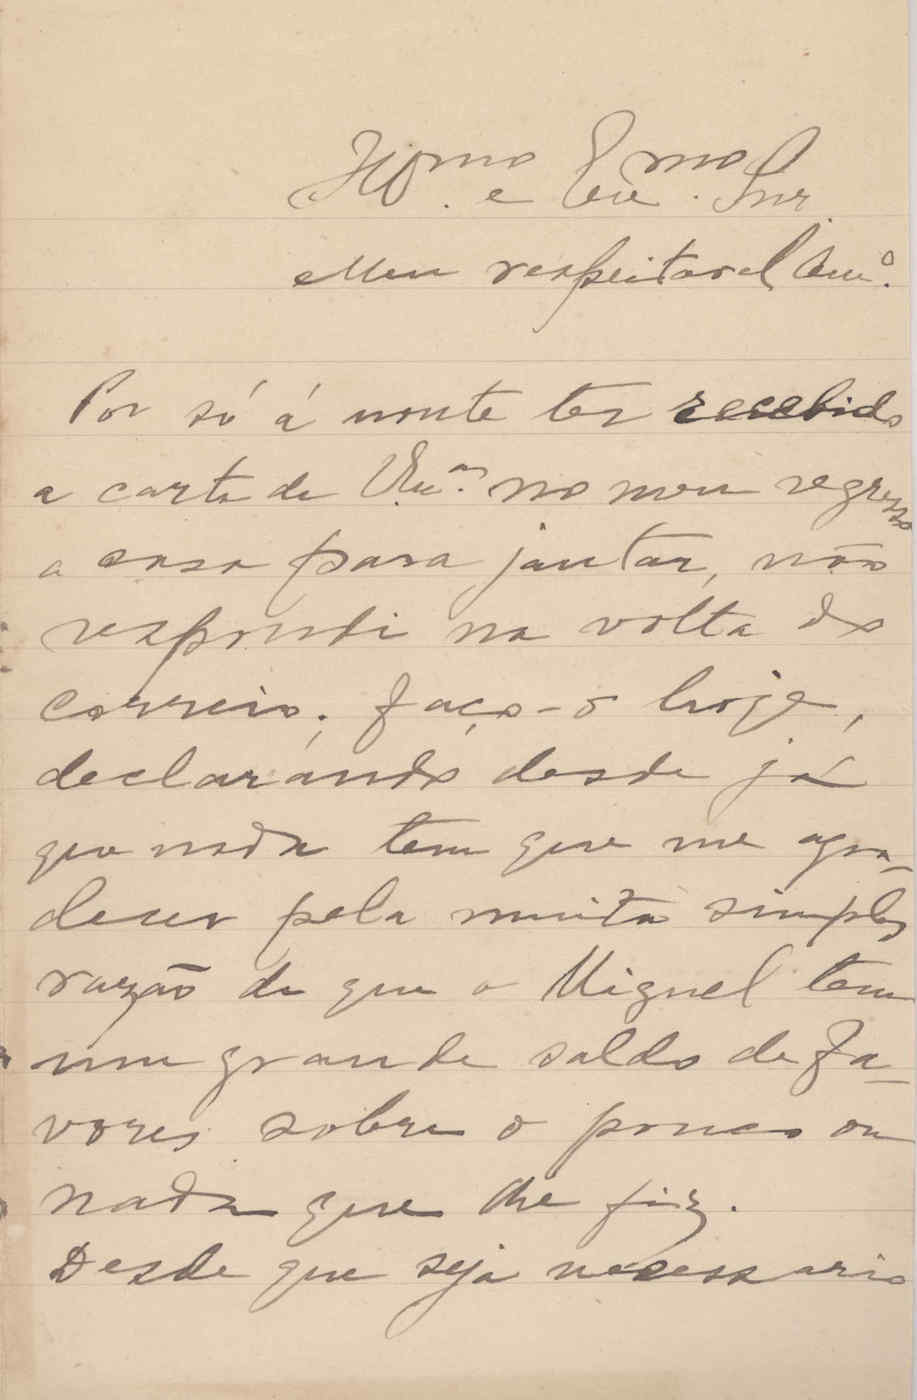 Illmo. e Exmo. Snr.
Meu respeitavel Amo.
Por só á noute ter recebido
a carta de V. Exa. no meu regresso
a casa para jantar, não
respondi na volta do
correio; faço-o hoje,
declarando desde já
que nada tem que me agra-
decer pela muito simples
razão de que o Miguel tem
um grande saldo de fa-
vores sobre o pouco ou
nada que lhe fiz.
Desde que seja necessario